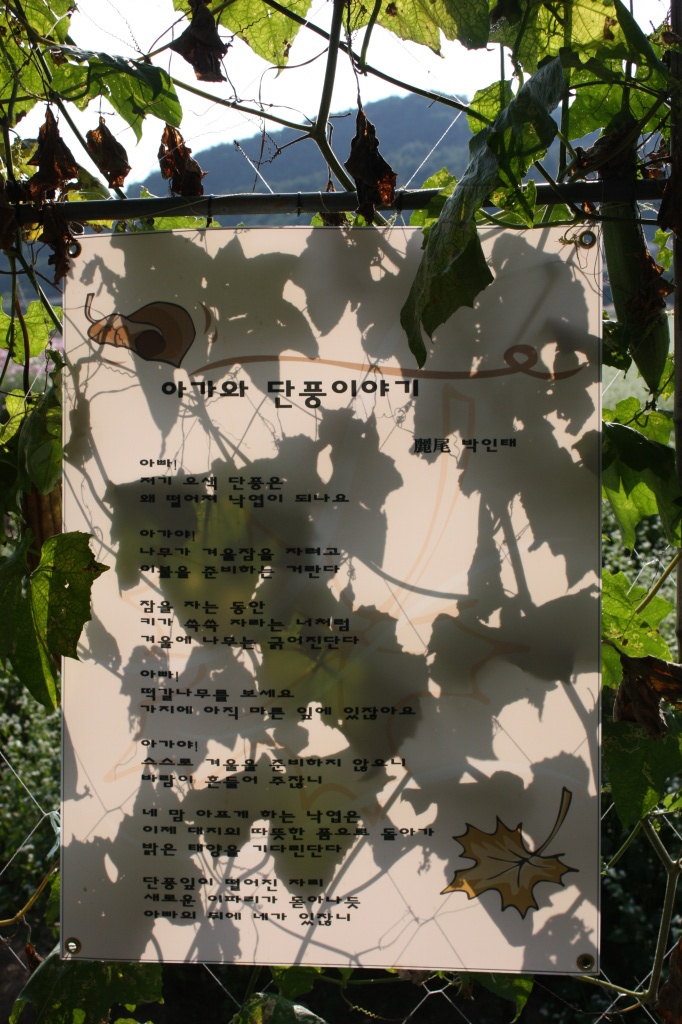 아가와 단풍이야기
麗尾 박인태
아빠!
저기 오색 단풍은
왜 떨어져 낙엽이 되나요
아가야!
나무가 겨울잠을 자려고
이불을 준비하는 거란다
잠을 자는 동안
키가 쑥쑥 자라는 너처럼
겨울에 나무는 굵어진단다
아빠!
떡갈나무를 보세요
가지에 아직 마른 잎에 있잖아요
아가야!
스스로 겨울을 준비하지 않으니
바람이 흔들어 주잖니
네 맘 아프게 하는 낙엽은
이제 대지의 따뜻한 품으로 돌아가
밝은 태양을 기다린단다
단풍잎이 떨어진 자리
새로운 이파리가 돋아나듯
아빠의 뒤에 네가 있잖니